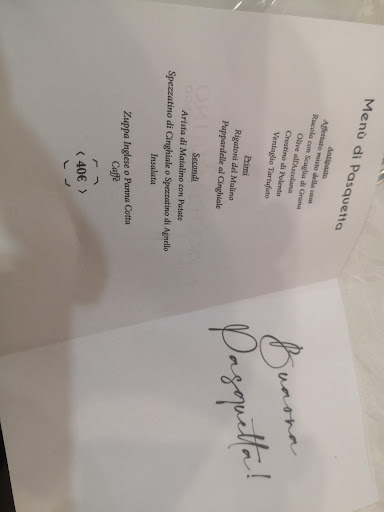 Menù di Pasquetta
Antipasti
Affettato misto della casa
Rucola con Scaglia di Grana
Olive all'Ascolana
Crostino di Polenta
Ventaglio Tartufato
Primi
Rigatoni del Mulino
Pappardelle al Cinghiale
Secondi
Arista di Maialino con Patate
Spezzatino di Cinghiale o Spezzatino di Agnello
Insalata
Zuppa Inglese o Panna Cotta
Caffè
40€
Buaona
Pasquetta!